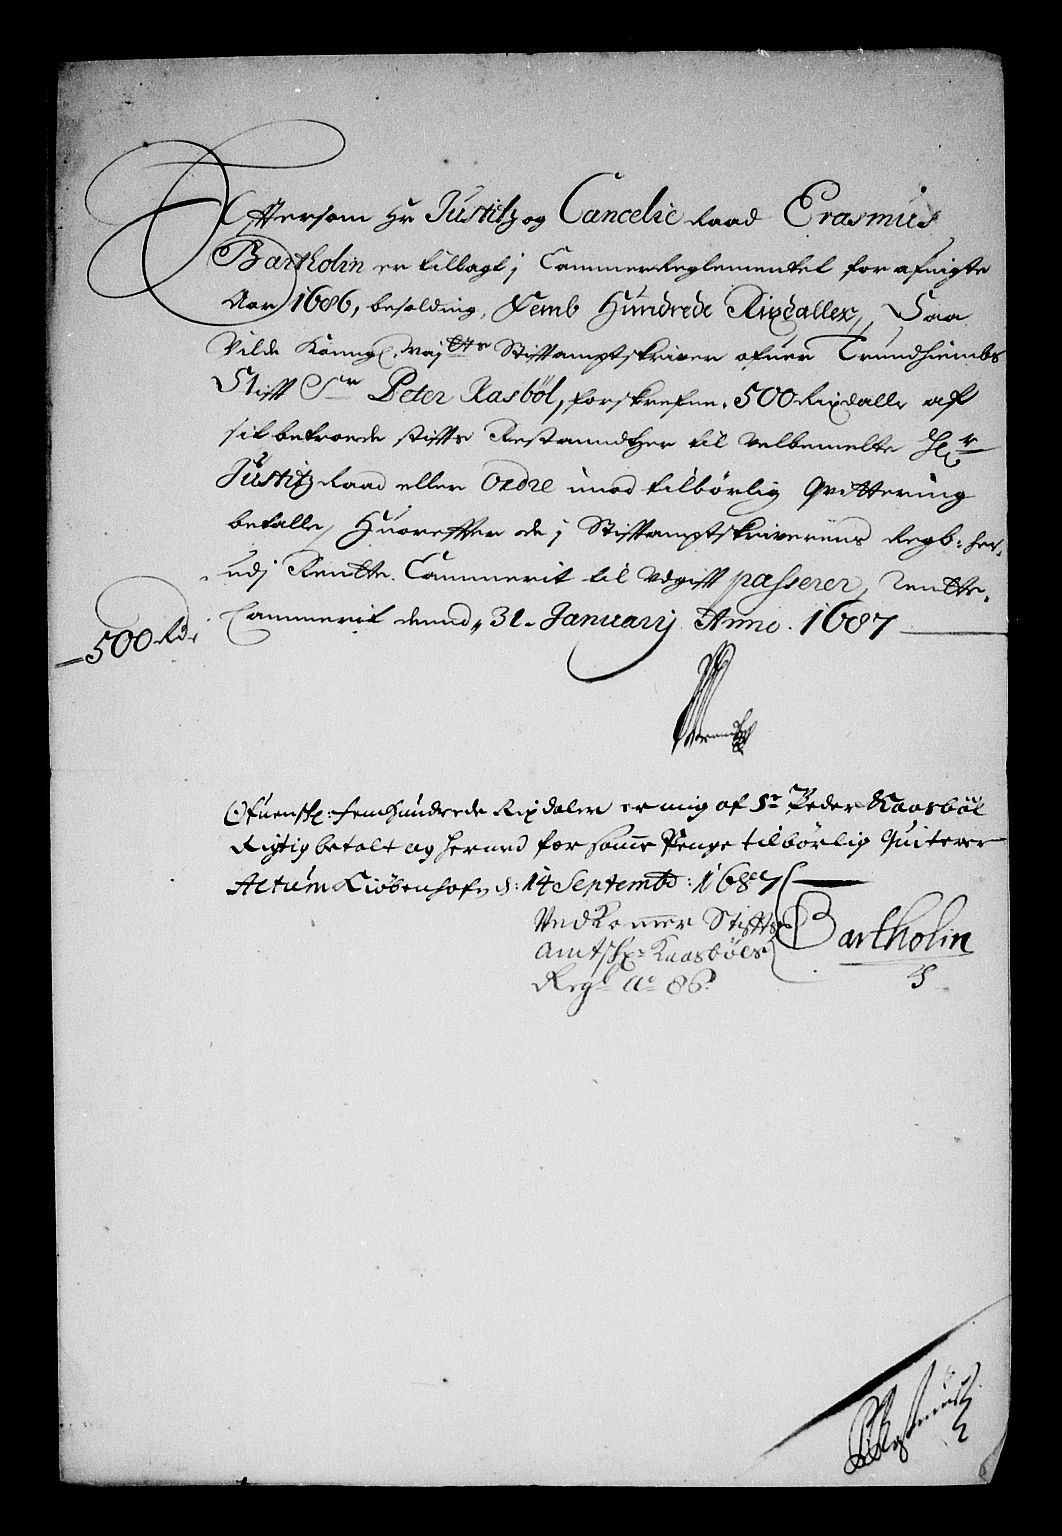 Eftersom Hr Justitz og Cancelie Raad Erasmus
Bartholin er tillagt j Cammer Reglementet for afvigte
Aar 1686, besolding, Femb Hundrede Rixdaller, Saa
Vilde Kongl. Maj:tts Stiftamptskriver ofuer Trundhiembs
Stift Sr Peter Kasböl, forskrefne, 500 Rixdaller af
sit betroede stifts Restantzer til velbemelte Hr
Justitz Raad eller Ordre imod tilbörlig Qvittering
betalle, Huorefter de j Stiftamptskriverens Regb: her,,
udj Rentte Cammerit til Udgift passerer, Rentte,
Cammerit dennd,, 31. Januarij Anno. 1687
500 Rdr
Ofuenskr: femhundrede Rixdaler er mig af Sr Peder Kaasböl
Rigtig betalt og hermed for samme Penge tilbörlig Quiterer
Actum Kiöbenhafn d: 14 Septembr: 1687
Vedkommer Stifts
Amtskr: Kaasböls
Regb Ao 86.
Bartholin